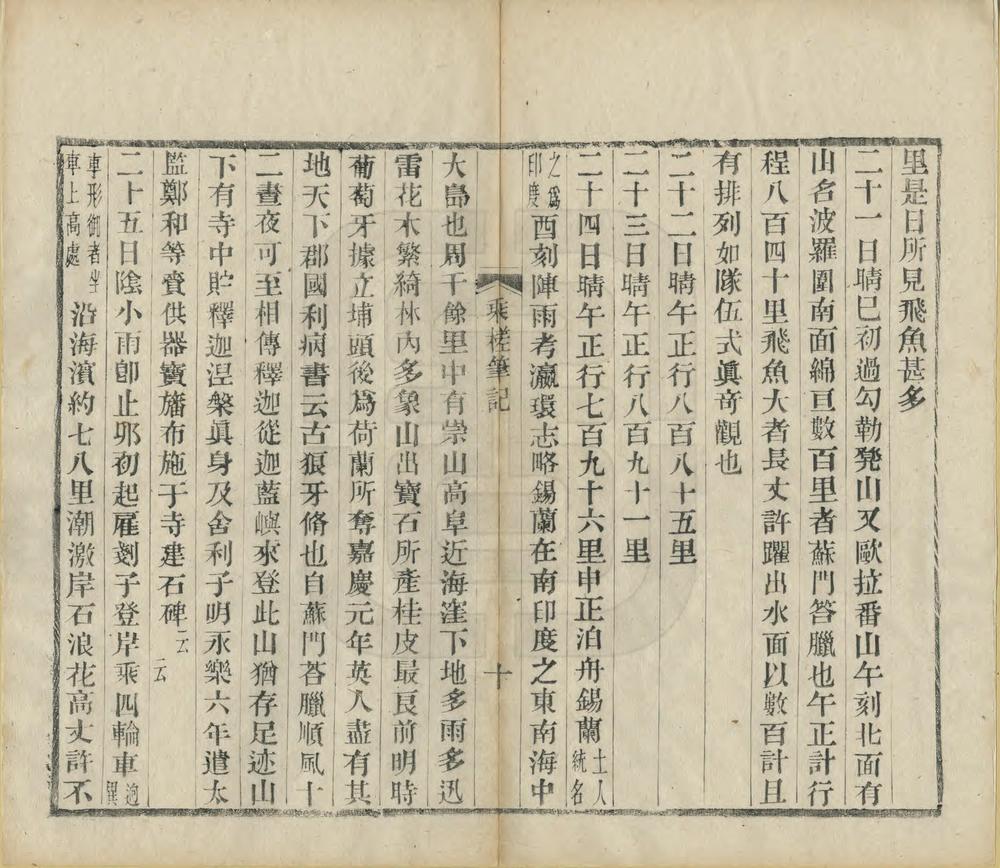 里是日所見飛魚甚多
二十一日晴巳初過勾勒凳山又歐拉番山午刻北面有
山名波羅圍南面綿亘數百里者蘇門答臘也午正計行
程八百四十里飛魚大者長丈許躍出水面以數百計且
有排列如隊伍式眞奇觀也
二十二日晴午正行八百八十五里
二十三日晴午正行八百九十一里
二十四日晴午正行七百九十六里申正泊舟錫蘭土人統名
之爲印度酉刻陣雨考瀛環志略錫蘭在南印度之東南海中
乘槎筆記 十
大島也周千餘里中有崇山高阜近海窪下地多雨多迅
雷花木繁綺林內多象山出寶石所產桂皮最良前明時
葡萄牙據立埔頭後爲荷蘭所奪嘉慶元年英人盡有其
地天下郡國利病書云古狼牙脩也自蘇門荅臘順風十
二晝夜可至相傳釋迦從迦藍嶼來登此山猶存足迹山
下有寺中貯釋迦涅槃眞身及舍利子明永樂六年遣太
監鄭和等賫供器寶旛布施于寺建石碑云云
二十五日陰小雨卽止卯初起雇剗子登岸乘四輪車迥異
車形御者坐車上高處沿海濱約七八里潮激岸石浪花高丈許不